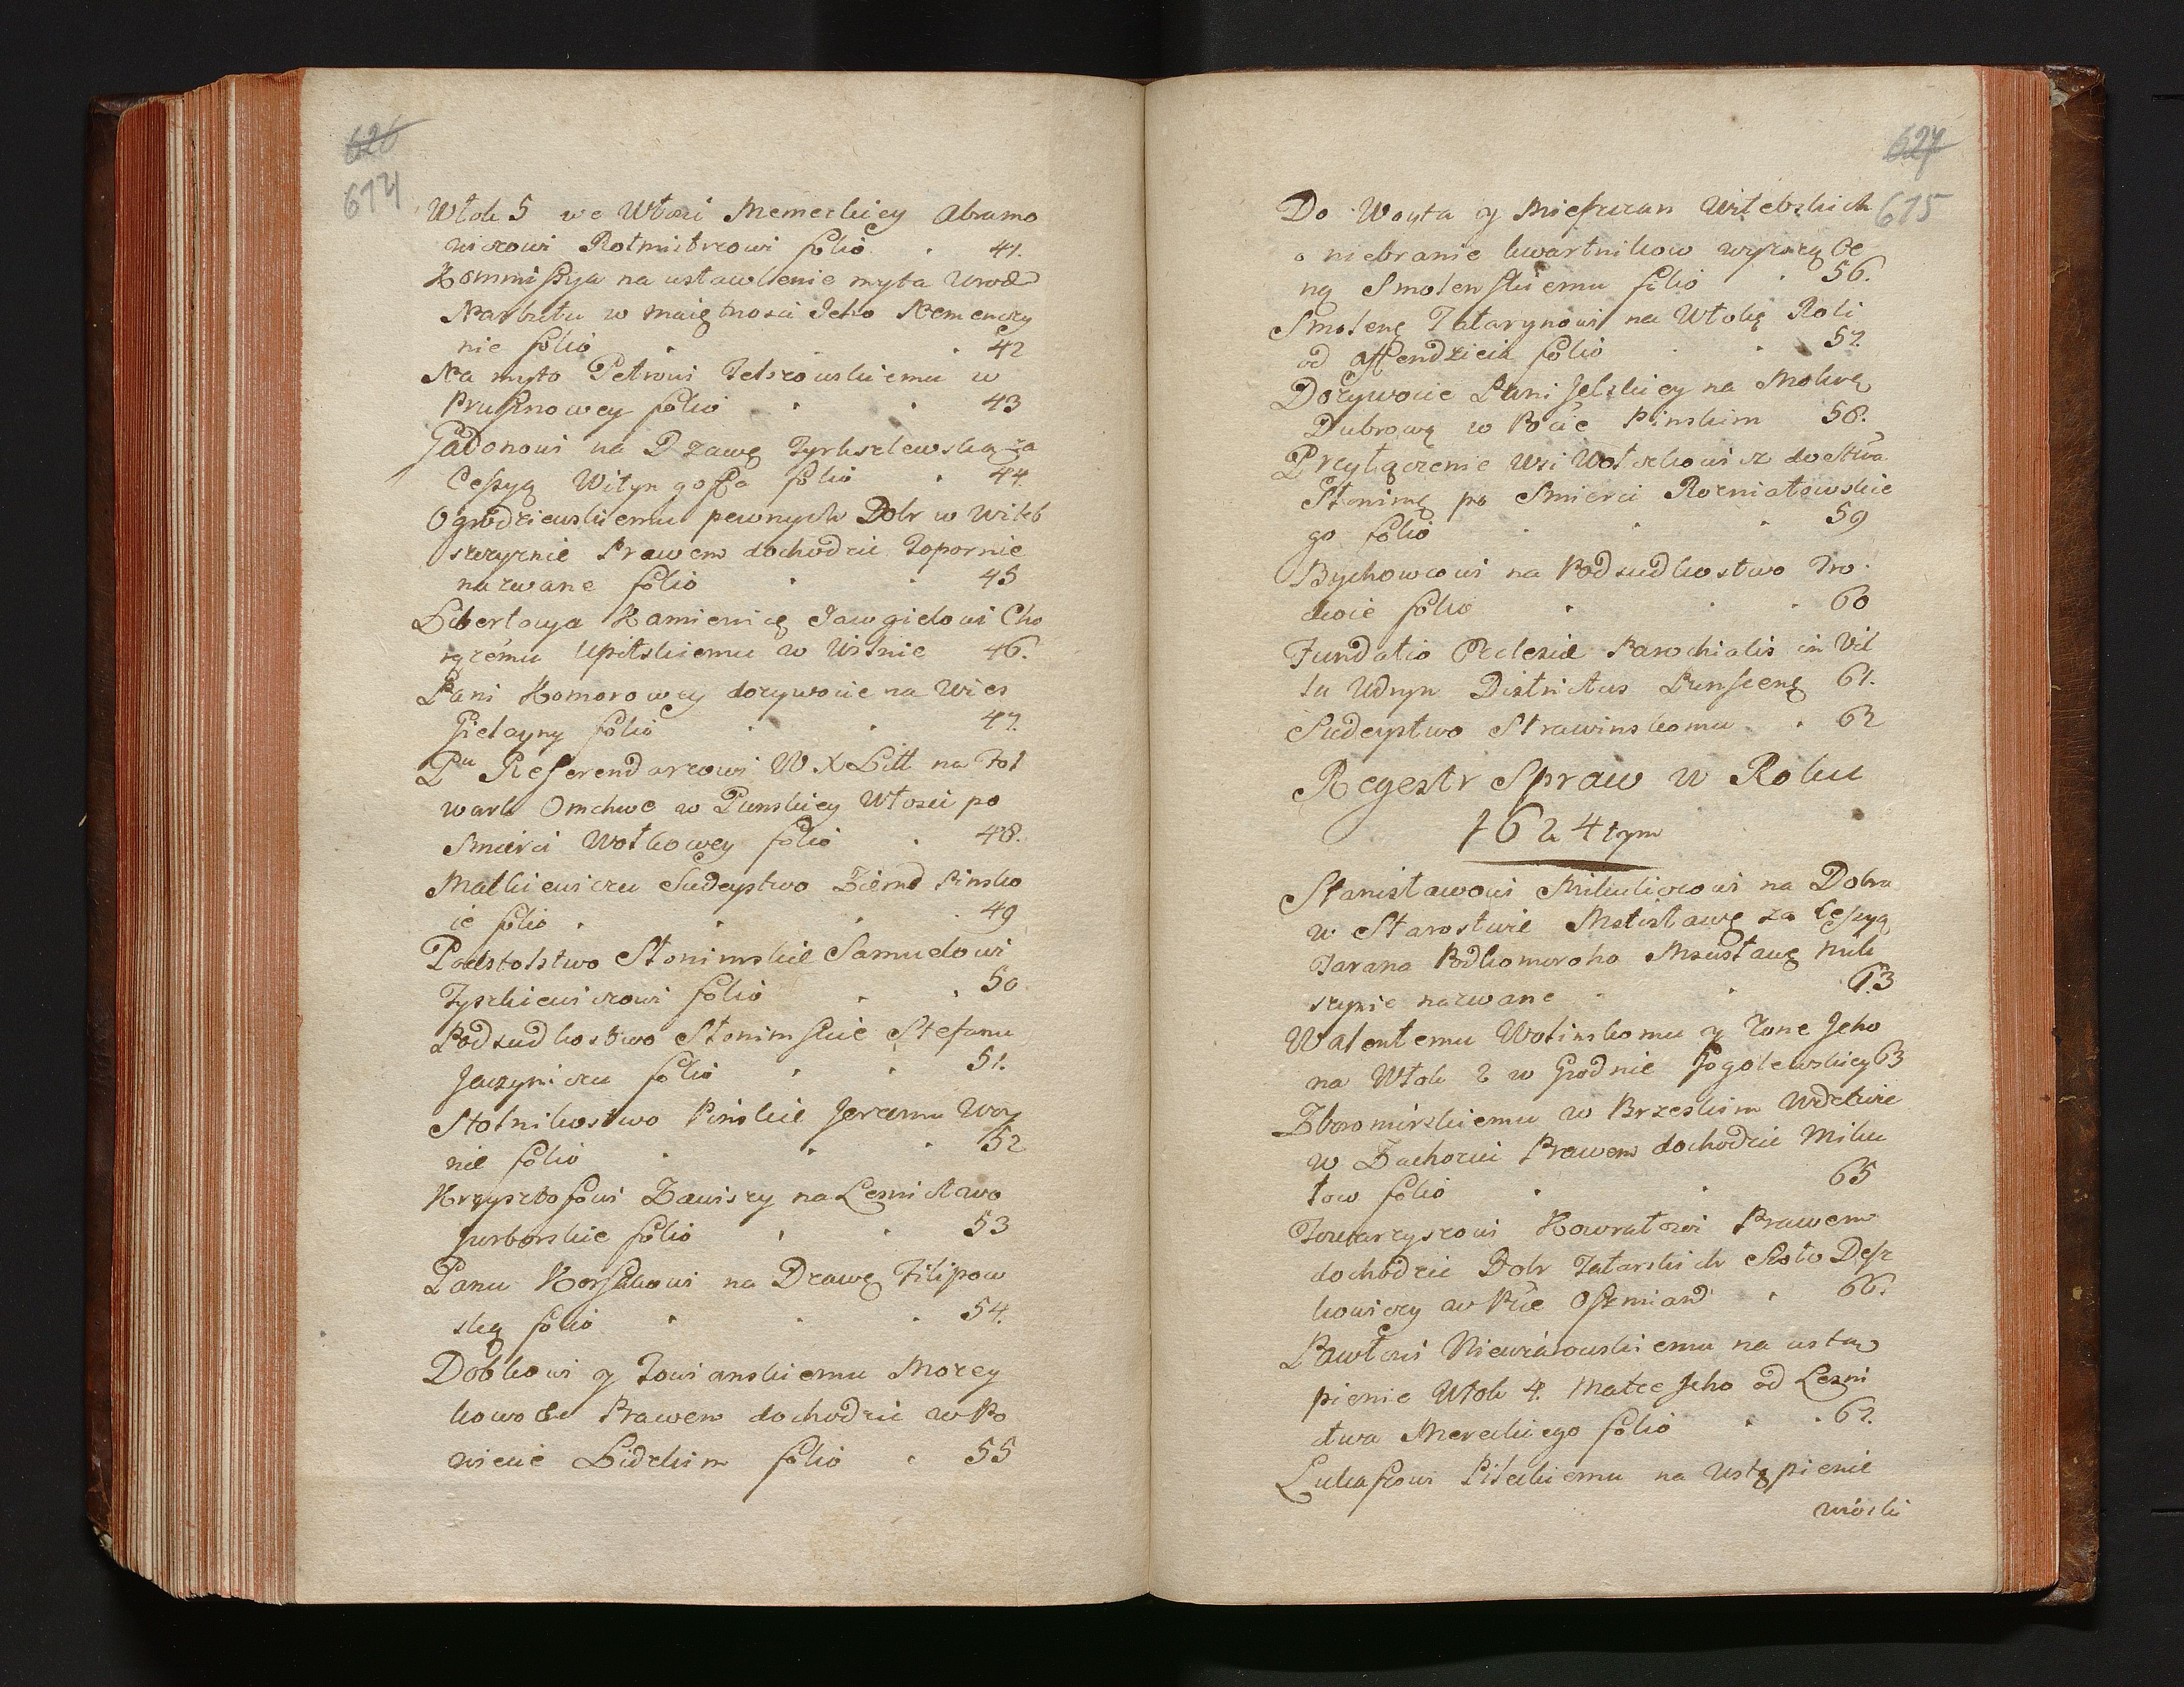 626
614
Włok 5 we Włosci Memeckiey Abramo
wiczowi Rotmistrzowi folio 41.
Kommissya na ustawienie myta Urod
Narbutu w Maiętnosci Jeho Nemenczy
nie folio 42
Na myto Petrowi Jelszowskiemu w
Prusznowey folio 43
Gadonowi na Dzawę Tyrkszlewską za
Cessyą Wityngoffa folio 44.
Ogrodziewskiemu pewnych Dobr w Witeb
szczyznie Prawem dochodzic Topornie
nazwane folio 45
Libertacya Kamienicę Jawgielowi Cho
rążemu Upitskiemu w Wilnie 46.
Pani Komorowey dozywocie na Wies
Gielayny folio 47.
Pu Referendarzowi W. X Litt na Fol
wark Omchwe w Punskiey Włosci po
Smierci Wołkowey folio 48.
Matkiewiczu Sudeystwo Ziemd Pinsko
ie folio 49
Podstolstwo Słonimskie Samuelowi
Tyszkiewiczowi folio 50
Podsudkostwo Słonimskie Stefanu
Jaczyniczu folio 51.
Stolnikostwo Pinskie Jeremu Woy
nie folio 52
Krzysztofowi Zawiszy na Lesnictwo
Jurborskie folio 53
Panu Korsakowi na Dzawę Filipow
ską folio 54.
Dobkowi y Towianskiemu Morey
kowo Prawem dochodzic w Po
wiecie Lidzkim folio 55
627
615
Do Woyta y Mieszczan Witebskich
o niebranie kwartnikow
ną Smolenskiemu folio 56.
Smolenę Tatarynowi na Włokę Roli
od Affendzicia folio 57.
Dozywocie Pani Jelskiey na Mokrą
Dubrowę w Pocie Pinskim 58.
Przyłączenie Wsi Wołczkowicz do Stwa
Słonimę po Smierci Rozniatowskie
go folio 59
Bychowcowi na Podsudkostwo Tro
ckoie folio 60
Fundatio Eclesiæ Parochialis in Vil
la Udryn Districtus Punscenę 61.
Sudeystwo Strawinskomu 62
Regestr Spraw w Roku
1624tym
Stanisławowi Mikuliczowi na Dobra
w Starostwie Mstisławę za Cessyą
Tarana Podkomoroho Mscisławę Mik
szynie nazwane 63
Walentemu Wolinskomu y Zone Jeho
na Włok 2 w Grodnie Jogolewskiey 63
Zboromirskiemu w Brzeskim Wdztwie
w Zachorui Prawem dochodzic Miku
łow folio 65
Towarzyszowi Kowratowi Prawem
dochodzic Dobr Tatarskich Sioło Desz
kowiczy w Pcie Oszmiand 66.
Pawłowi Niewiarowskiemu na ustą
pienie Włok 4. Matce Jeho od Lesni
ctwa Mereckiego folio 67.
Lukaszowi Piseckiemu na Ustąpienie
wioski